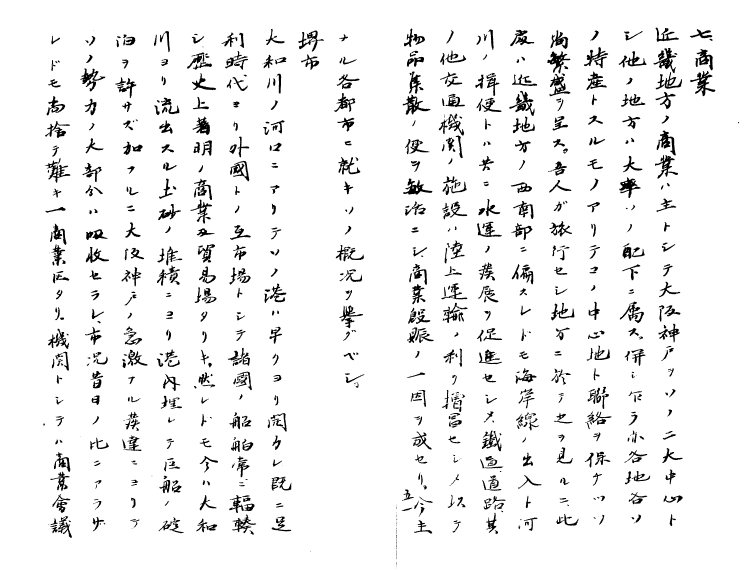 七、商業
近畿地方ノ商業ハ主トシテ大阪神戸ヲソノ二大中心ト
シ他ノ地方ハ大率ソノ配下ニ属ス。併シ乍ラ亦各地各ソ
ノ特産トスルモノアリテコノ中心地ト聯絡ヲ保チツツ
尚繁盛ヲ呈ス。吾人ガ旅行セシ地方ニ於テ之ヲ見ルニ、此
度ハ近畿地方ノ西南部ニ偏スレドモ海岸線ノ出入ト河
川ノ揖便トハ共ニ水運ノ発展ヲ促進セシメ、鐵道道路其
ノ他交通機関ノ施設ハ陸上運輸ノ利ヲ増冨セシメ以テ
物品集散ノ便ヲ敏活ニシ、商業殷賑ノ一因ヲ成セリ。今主
五一
ナル各都市ニ就キソノ概況ヲ挙グベシ。
堺市
大和川ノ河口ニアリテソノ港ハ早クヨリ開カレ既ニ足
利時代ヨリ外國トノ互市場トシテ諸國ノ船舶常ニ輻輳
シ歴史上著明ノ商業及貿易場タリキ。然レドモ今ハ大和
川ヨリ流出スル土砂ノ堆積ニヨリ港内埋レテ巨船ノ碇
泊ヲ許サズ加フルニ大阪神戸ノ急激ナル発達ニヨリテ
ソノ勢力ノ大部分ハ吸收セラレ、市況昔日ノ比ニアラザ
レドモ尚捨テ難キ一商業区タリ。機関トシテハ商業會議